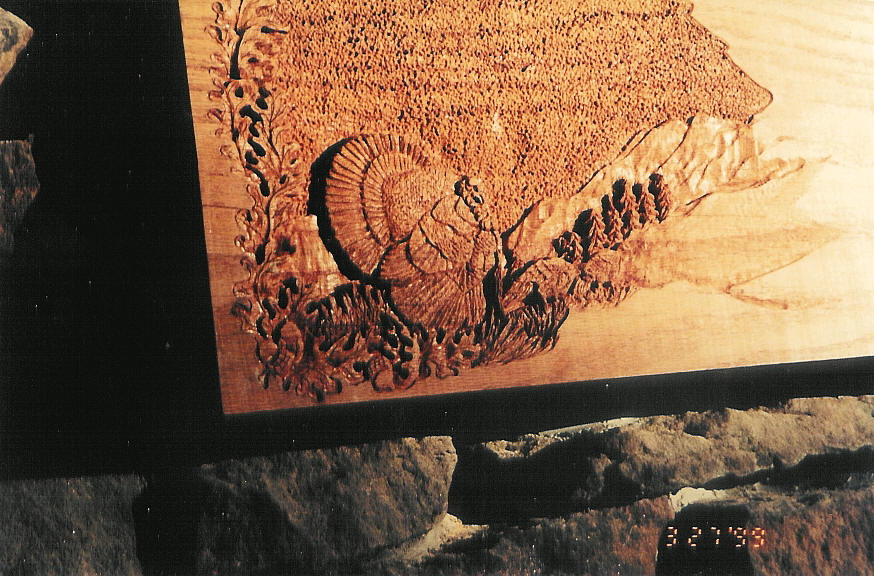 3 27 '99